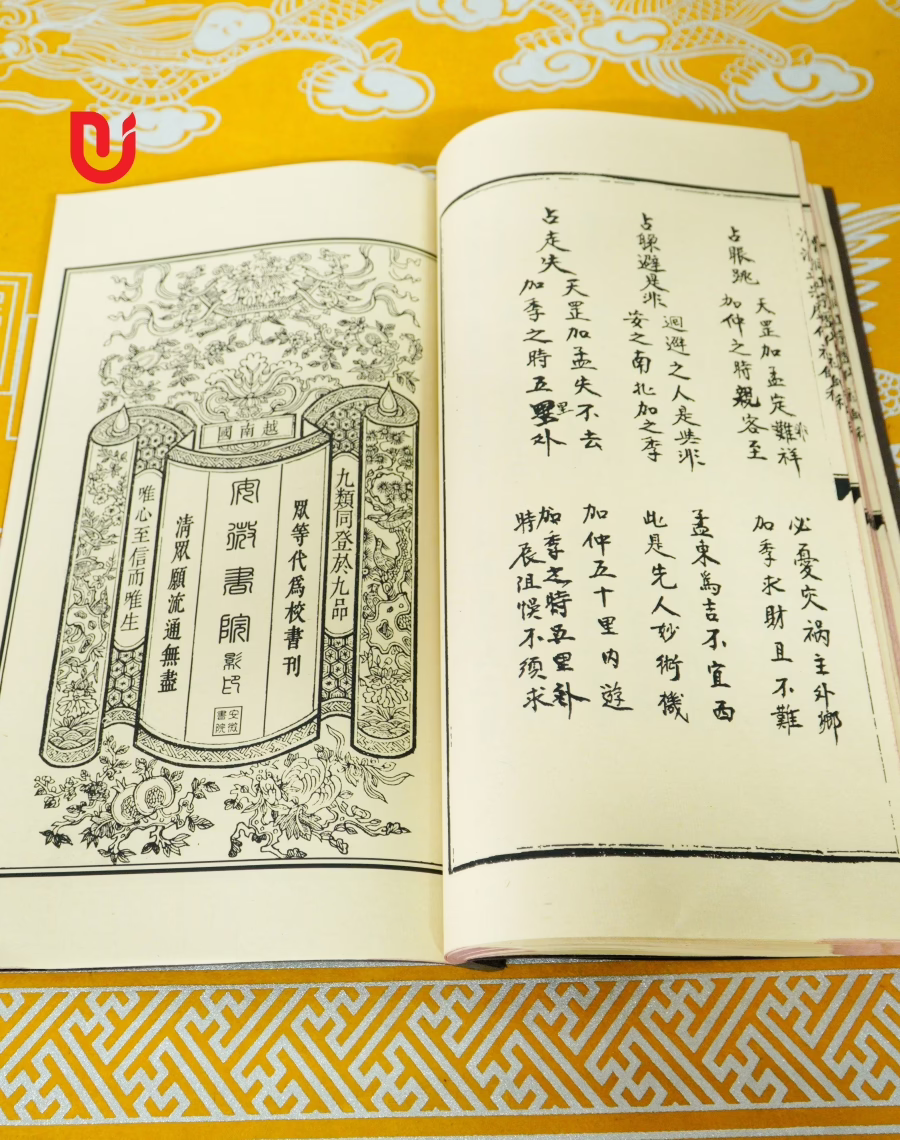 占眼跳
天罡加孟定難祥
必憂灾祸主外鄉
加仲之時親客至
加季求財且不難
占躱避是非
迴避之人是非
孟東為吉不宜西
安之南北加之季
此是先人妙術機
占走失
天罡加孟失不去
加仲五十里内遊
加季之時五里外
加季之時五里卦
時辰阻悞不須求
越南國
九類同登於九品
眾等代爲校書刊
安微書院影印
安微書院
清眾願流通無盡
唯心至信而唯生